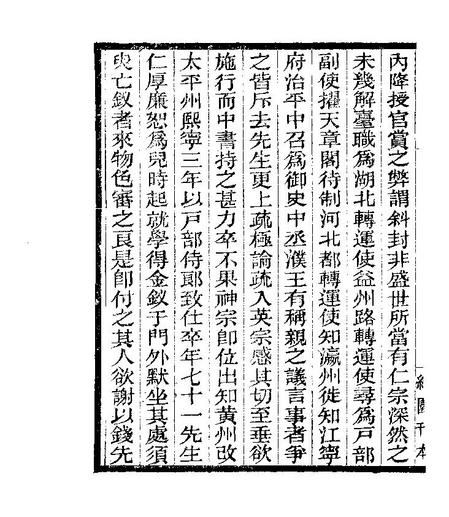 內降授官賞之弊謂斜封非盛世所當有仁宗深然之
未幾解臺職為湖北轉運使益州路轉運使尋為戶部
副使擢天章閣待制河北都轉運使知瀛州徙知江寧
府治平中召為御史中丞濮王有稱親之議言事者爭
之皆斥去先生更上疏極論疏入英宗感其切至垂欲
施行而中書持之甚力卒不果神宗卽位出知黃州改
太平州熙寧三年以戸部侍郎致仕卒年七十一先生
仁厚廉恕為兒時起就學得金釵于門外默坐其處須
臾亡釵者來物色審之良是卽付之其人欲謝以錢先